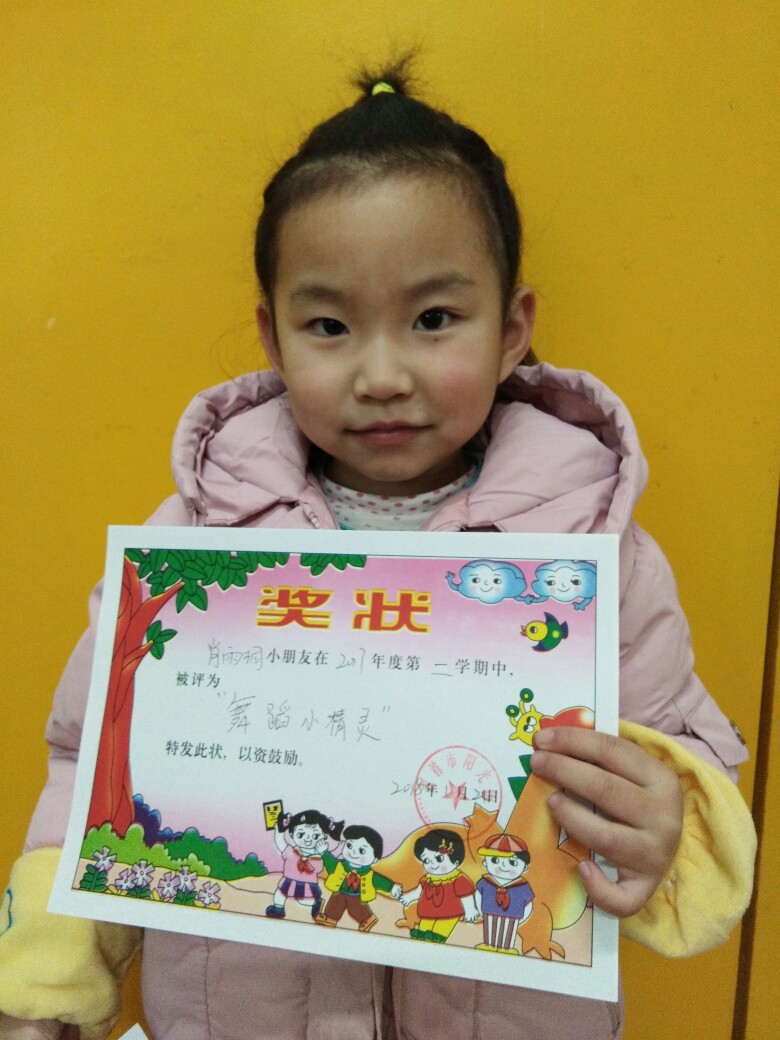 奖状
肖雨桐小朋友在2017年度第二学期中，
被评为
"舞蹈小精灵"
特发此状，以资鼓励。
2018年1月24日
市阳光